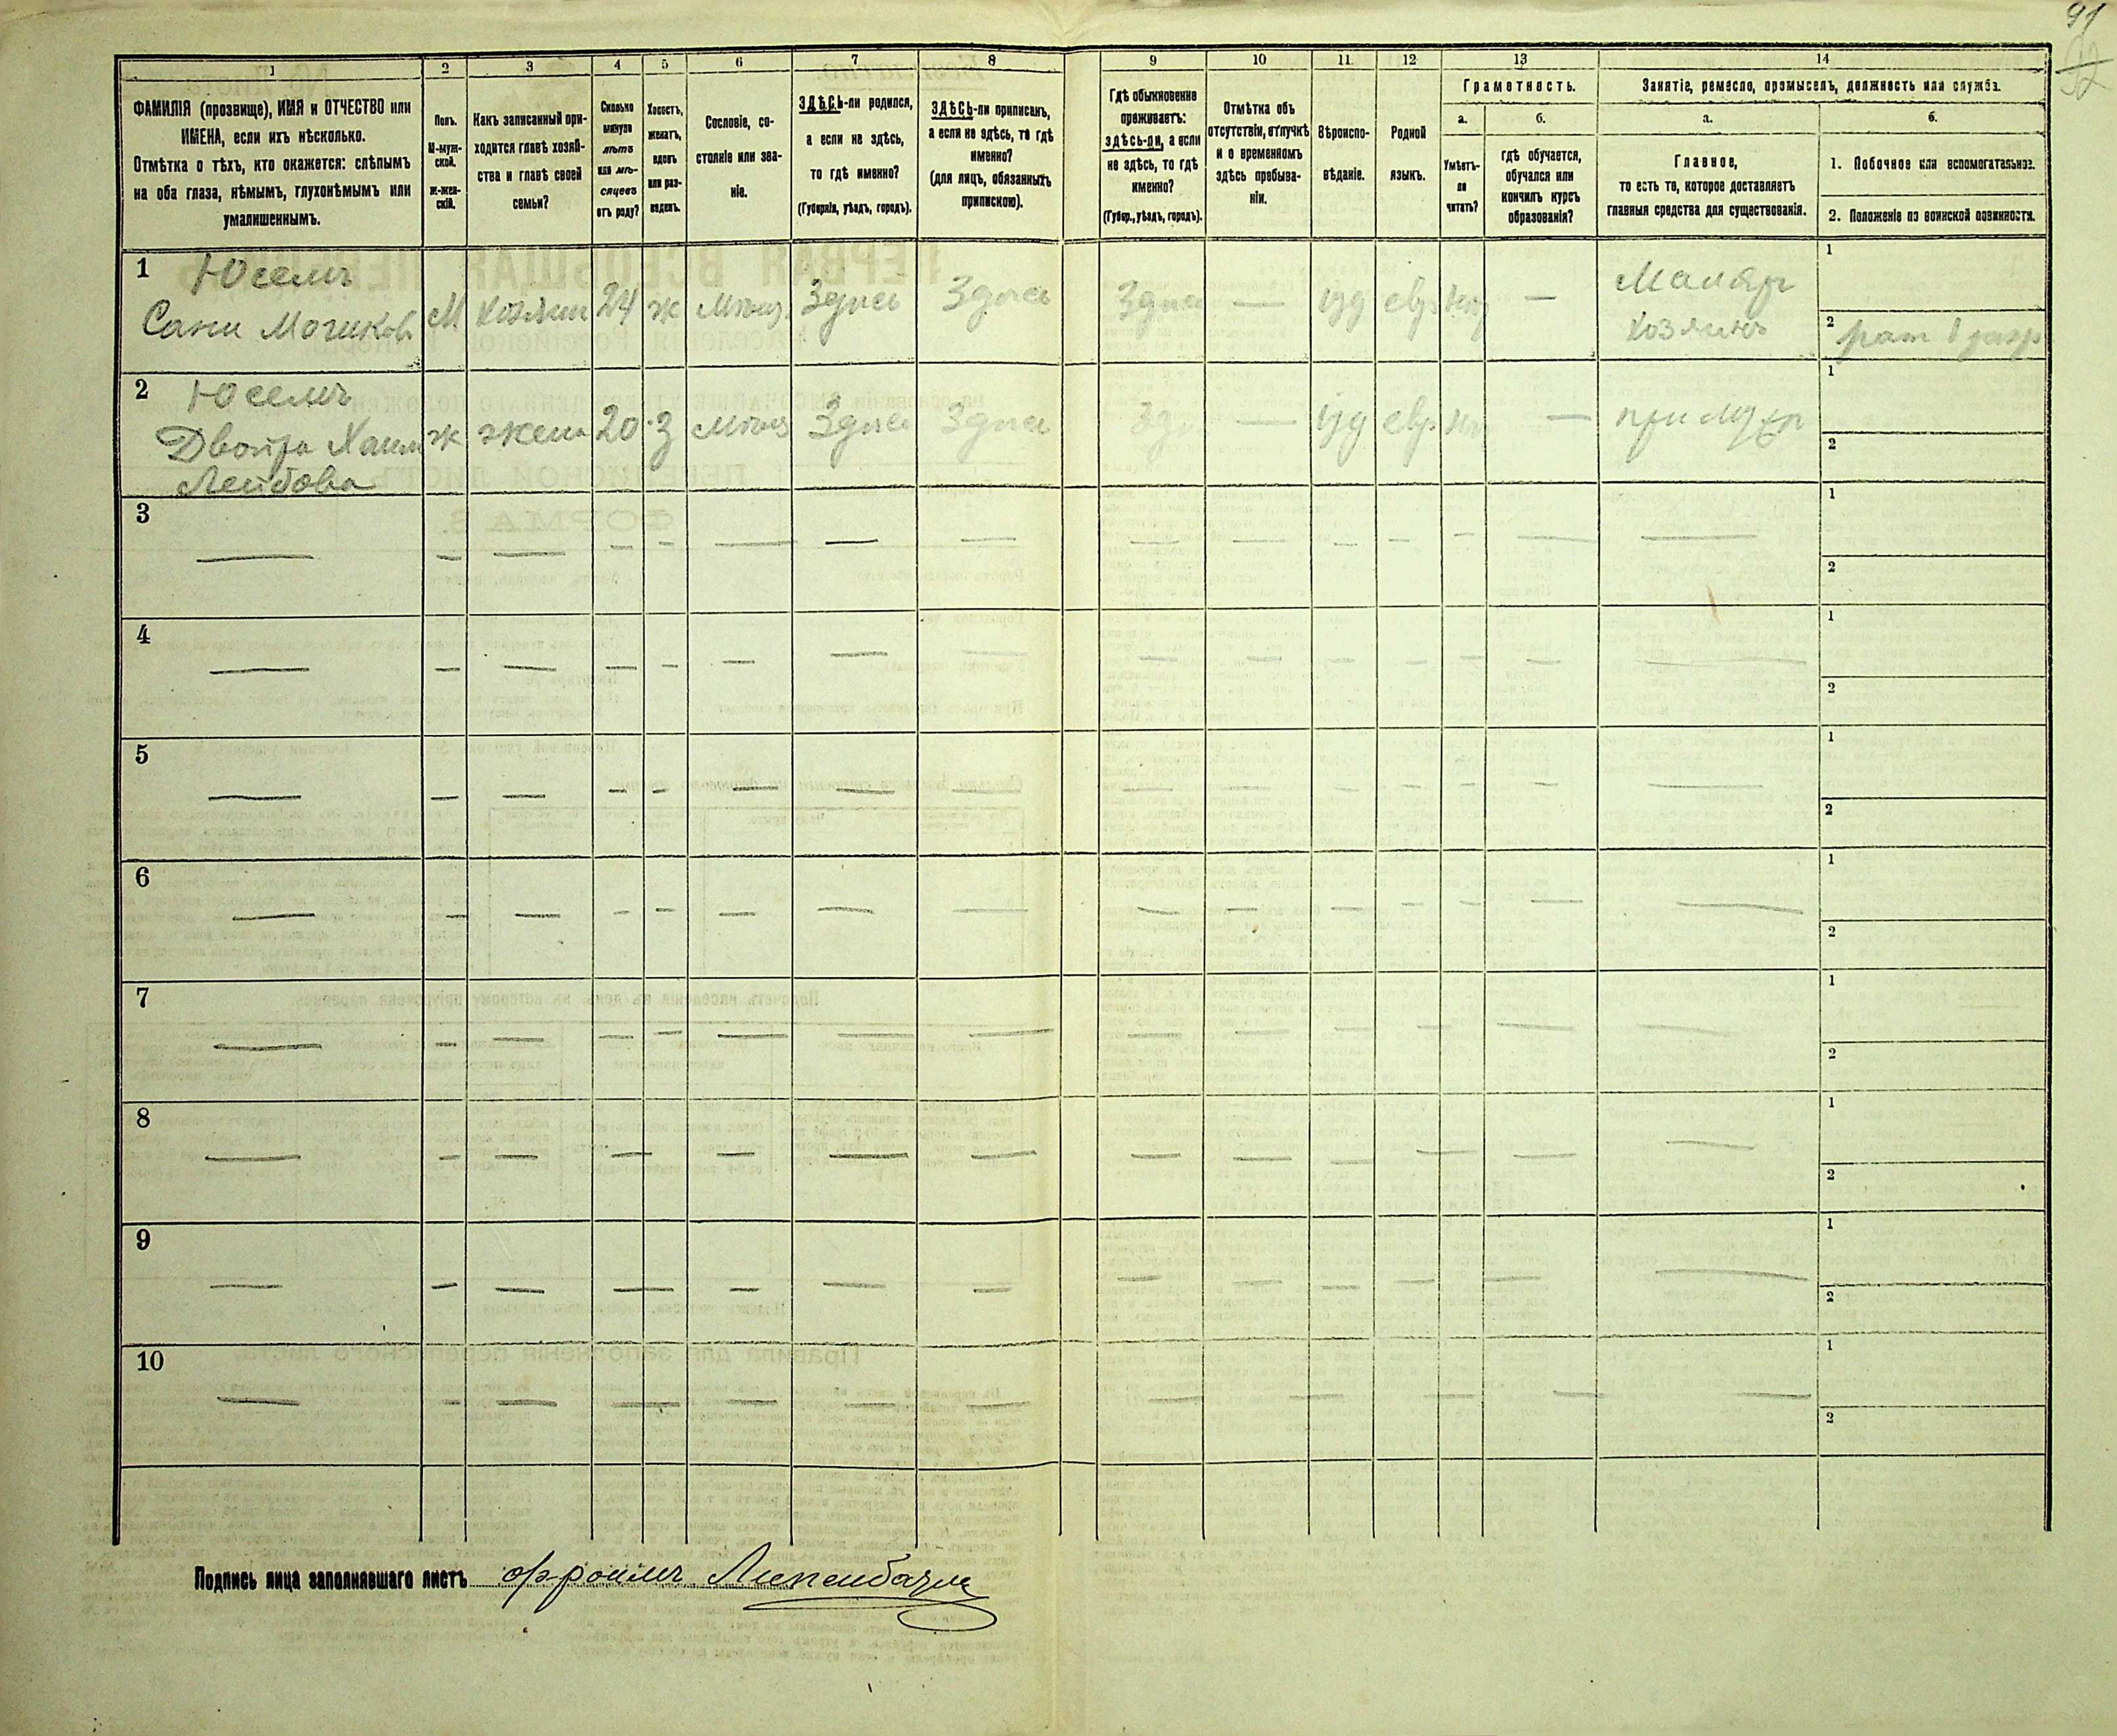 91
92
1
2
3
4
5
6
7
8
9
10
11
12
13
14
ФАМИЛІЯ (прозвище), ИМЯ и ОТЧЕСТВО или
ИМЕНА, если ихъ нѣсколько.
Отмѣтка о тѣхъ, кто окажется: слѣпымъ
на оба глаза, нѣмымъ, глухонѣмымъ или
умалишеннымъ.
Полъ.
М-муж-
ской.
Ж-жен-
скій.
Какъ записанный при-
ходится главѣ хозяй-
ства и главѣ своей
семьи?
Сколько
минуло
лѣтъ
или мѣ-
сяцевъ
отъ роду?
Холостъ,
женатъ,
вдовъ
или раз-
веденъ.
Сословіе, со-
стояніе или зва-
ніе.
ЗДѢСЬ-ли родился,
а если не здѣсь,
то гдѣ именно?
(Губернія, уѣздъ, городъ).
ЗДѢСЬ-ли приписанъ,
а если не здѣсь, то гдѣ
именно?
(для лицъ, обязанныхъ
припискою).
Гдѣ обыкновенно
проживаетъ:
здѣсь-ли, а если
не здѣсь, то гдѣ
именно?
(Губер., уѣздъ, городъ).
Отмѣтка объ
отсутствіи, отлучкѣ
и о временномъ
здѣсь пребыва-
ніи.
Вѣроиспо-
вѣданіе.
Родной
языкъ.
Грамотность.
а.
Умѣетъ-
ли
читать?
б.
гдѣ обучается,
обучался или
кончилъ курсъ
образованія?
Занятіе, ремесло, промыселъ, должность или служба.
а.
Главное,
то есть то, которое доставляетъ
главныя средства для существованія.
б.
1. Побочное или вспомогательное.
2. Положеніе по воинской повинности.
1 Юсемъ
М Хозяин 24 ж Мѣщ. Здѣсь Здѣсь Здѣсь — іуд евр — Маляр
хозяинъ
1
2 рат 1 разр
2 Юсемъ
Двойра Хаим
Лейбова
ж жена 20 з Мѣщ Здѣсь Здѣсь — іуд евр — при муж
1
2
3 — 1
2
4 — 1
2
5 — 1
2
6 — 1
2
7 — 1
2
8 — 1
2
9 — 1
2
10 — 1
2
Подпись лица заполнявшаго листъ Фроимъ